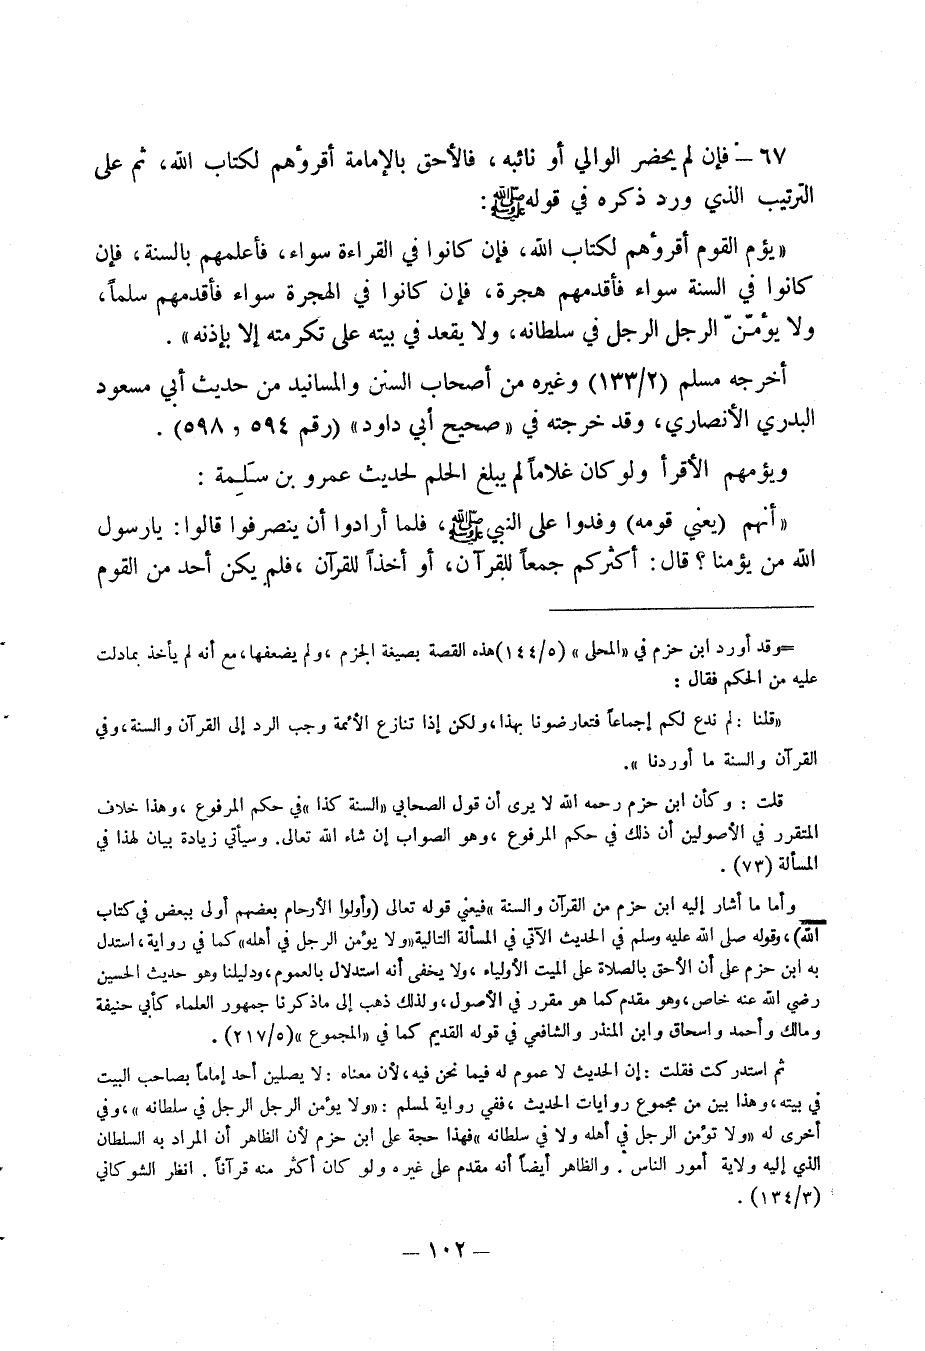 ٦٧ – فإن لم يحضر الوالي أو نائبه، فالأحق بالإمامة أقرؤهم لكتاب الله، ثم على
الترتيب الذي ورد ذكره في قوله ﷺ:
«يؤم القوم أقرؤهم لكتاب الله، فإن كانوا في القراءة سواء، فأعلمهم بالسنة، فإن
كانوا في السنة سواء فأقدمهم هجرة، فإن كانوا في الهجرة سواء فأقدمهم سلماً،
ولا يؤمّنّ الرجل الرجل في سلطانه، ولا يقعد في بيته على تكرمته إلا بإذنه».
أخرجه مسلم (١٣٣/٢) وغيره من أصحاب السنن والمسانيد من حديث أبي مسعود
البدري الأنصاري، وقد خرجته في «صحيح أبي داود» (رقم ٥٩٤ و ٥٩٨).
ويؤمهم الأقرأ ولو كان غلاماً لم يبلغ الحلم لحديث عمرو بن سَلِمة :
«أنهم (يعني قومه) وفدوا على النبي ﷺ، فلما أرادوا أن ينصرفوا قالوا: يارسول
الله من يؤمنا؟ قال: أكثركم جمعاً للقرآن، أو أخذاً للقرآن ،فلم يكن أحد من القوم
=وقد أورد ابن حزم في «المحلى» (١٤٤/٥)هذه القصة بصيغة الجزم ،ولم يضعفها،مع أنه لم يأخذ بمادلت
عليه من الحكم فقال :
«قلنا :لم ندع لكم إجماعاً فتعارضونا بهذا،ولكن إذا تنازع الأئمة وجب الرد إلى القرآن والسنة،وفي
القرآن والسنة ما أوردنا ».
قلت : وكأن ابن حزم رحمه الله لا يرى أن قول الصحابي «السنة كذا »في حكم المرفوع ،وهذا خلاف
المتقرر في الأصولين أن ذلك في حكم المرفوع ،وهو الصواب إن شاء الله تعالى. وسيأتي زيادة بيان لهذا في
المسألة (٧٣) .
وأما ما أشار إليه ابن حزم من القرآن والسنة »فيعني قوله تعالى (وأولوا الأرحام بعضهم أولى ببعض في كتاب
الله)،وقوله صلى الله عليه وسلم في الحديث الآتي في المسألة التالية«ولا يؤمن الرجل في أهله»كما في رواية،استدل
به ابن حزم على أن الأحق بالصلاة على الميت الأولياء ،ولا يخفى أنه استدلال بالعموم،ودليلنا وهو حديث الحسين
رضي الله عنه خاص،وهو مقدم كما هو مقرر في الأصول،ولذلك ذهب إلى ماذكرنا جمهور العلماء كأبي حنيفة
ومالك وأحمد واسحاق وابن المنذر والشافعي في قوله القديم كما في «المجموع »(٢١٧/٥) .
ثم استدركت فقلت :إن الحديث لا عموم له فيما نحن فيه،لأن معناه :لا يصلين أحد إماماً بصاحب البيت
في بيته،وهذا بين من مجموع روايات الحديث ،ففي رواية لمسلم :«ولا يؤمن الرجل الرجل في سلطانه »،وفي
أخرى له «ولا تؤمن الرجل في أهله ولا في سلطانه »فهذا حجة على ابن حزم لأن الظاهر أن المراد به السلطان
الذي إليه ولاية أمور الناس . والظاهر أيضاً أنه مقدم على غيره ولو كان أكثر منه قرآناً . انظر الشوكاني
(١٣٤/٣) .
– ١٠٢ –